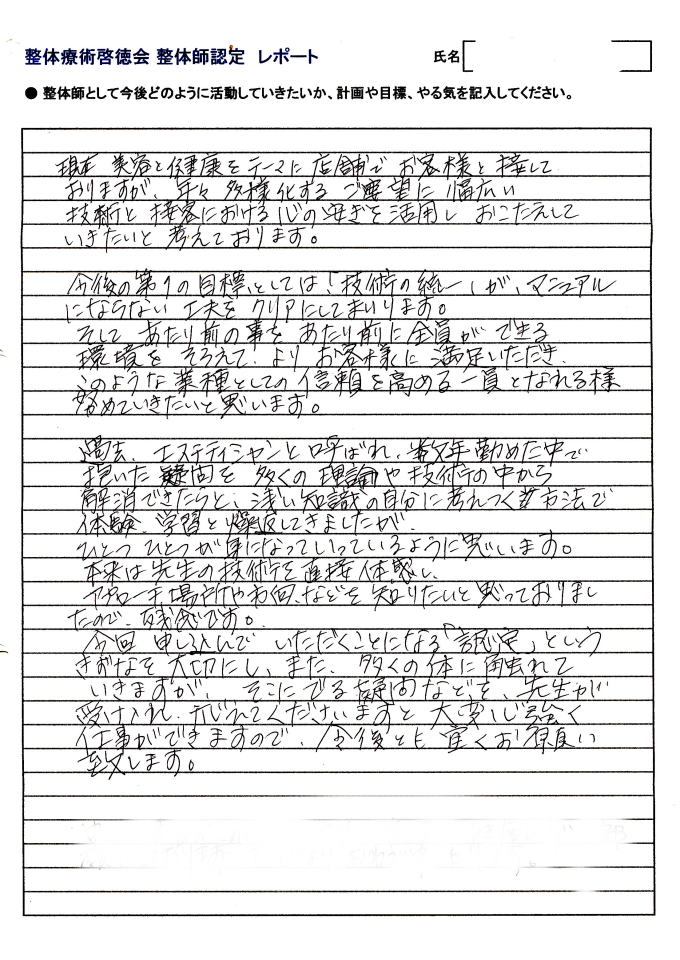 整体療術啓徳会 整体師認定 レポート
氏名
● 整体師として今後どのように活動していきたいか、計画や目標、やる気を記入してください。
現在 美容と健康をテーマに店舗で お客様と接して
おりますが、年々 多様化する ご要望に 幅広い
技術と 接客における心の安ぎを 活用し おこたえして
いきたいと 考えております。
今後の第1の目標としては「技術の統一」が、マニュアル
にならない 工夫を クリアにしてまいります。
そして あたり前の事を あたり前に 全員が できる
環境を そろえて、より お客様に 満足いただき、
このような 業種としての 信頼を高める一員となれる様
努めていきたいと思います。
過去、エステティシャンと呼ばれ、数年勤めた中で
抱いた疑問を 多くの 理論や 技術の中から
解消できたらと、浅い知識の自分に 考えつく 方法で
体験、学習と 繰返してきましたが、
ひとつ ひとつが身になっていっているように思います。
本来は先生の技術を直接体感し、
アプローチ場所や角 などを 知りたいと思っておりまし
たので、残念です。
今回 申し込んで いただくことになる「認定」という
きずなを 大切にし、また、多くの体に触れて
いきますが、そこにでる疑問などを、先生が
受け入れ、 てくださいますと 大変心強く
仕事ができますので、今後とも宜くお願い
致します。